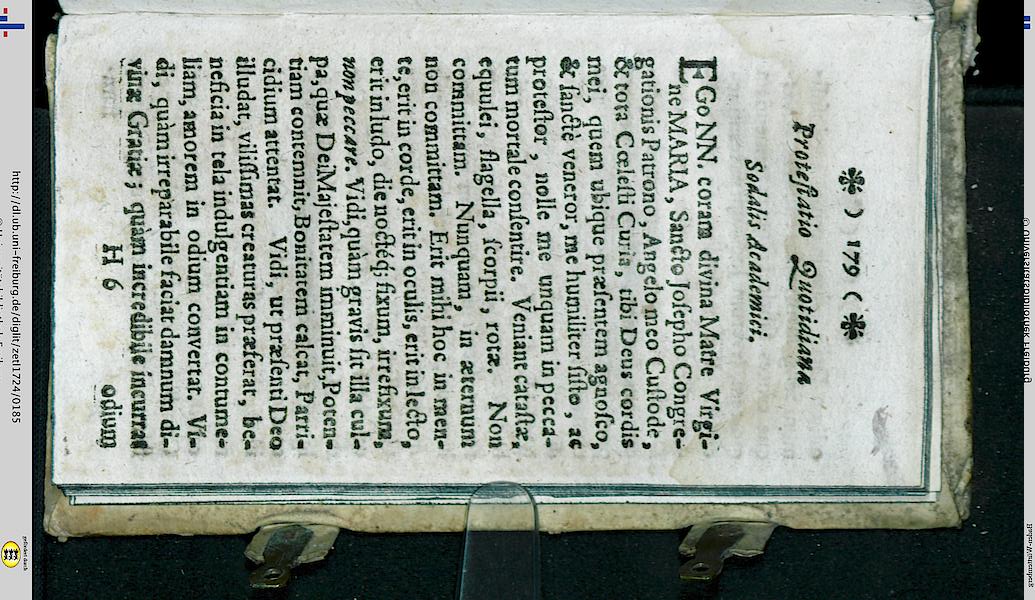 ❋ ) 179 ( ❋
Protestatio Quotidiana
Sodalis Academici.
EGo NN. coram divina Matre Virgi-
ne MARIA, Sancto Josepho Congre-
gationis Patrono, Angelo meo Custode,
& tota Cœlesti Curia, tibi Deus cordis
mei, quem ubique præsentem agnosco,
& sanctè veneror, me humiliter sisto, ac
protestor, nolle me unquam in pecca-
tum mortale consentire. Veniant catastæ,
equulei, flagella, scorpii, rotæ. Non
committam. Nunquam, in æternum
non committam. Erit mihi hoc in men-
te, erit in corde, erit in oculis, erit in lecto,
erit in ludo, die noctéq; fixum, irrefixum,
non peccare. Vidi, quàm gravis sit illa cul-
pa, quæ Dei Majestatem imminuit, Poten-
tiam contemnit, Bonitatem calcat, Parri-
cidium attentat. Vidi, ut præsenti Deo
illudat, vilissimas creaturas præferat, be-
neficia in tela indulgentiam in contume-
liam, amorem in odium convertat. Vi-
di, quàm irreparabile faciat damnum di-
vinæ Gratiæ; quàm incredibile incurrat
H 6 odium
http://dl.ub.uni-freiburg.de/diglit/zetl1724/0185
© Universitätsbibliothek Freiburg
gefördert durch